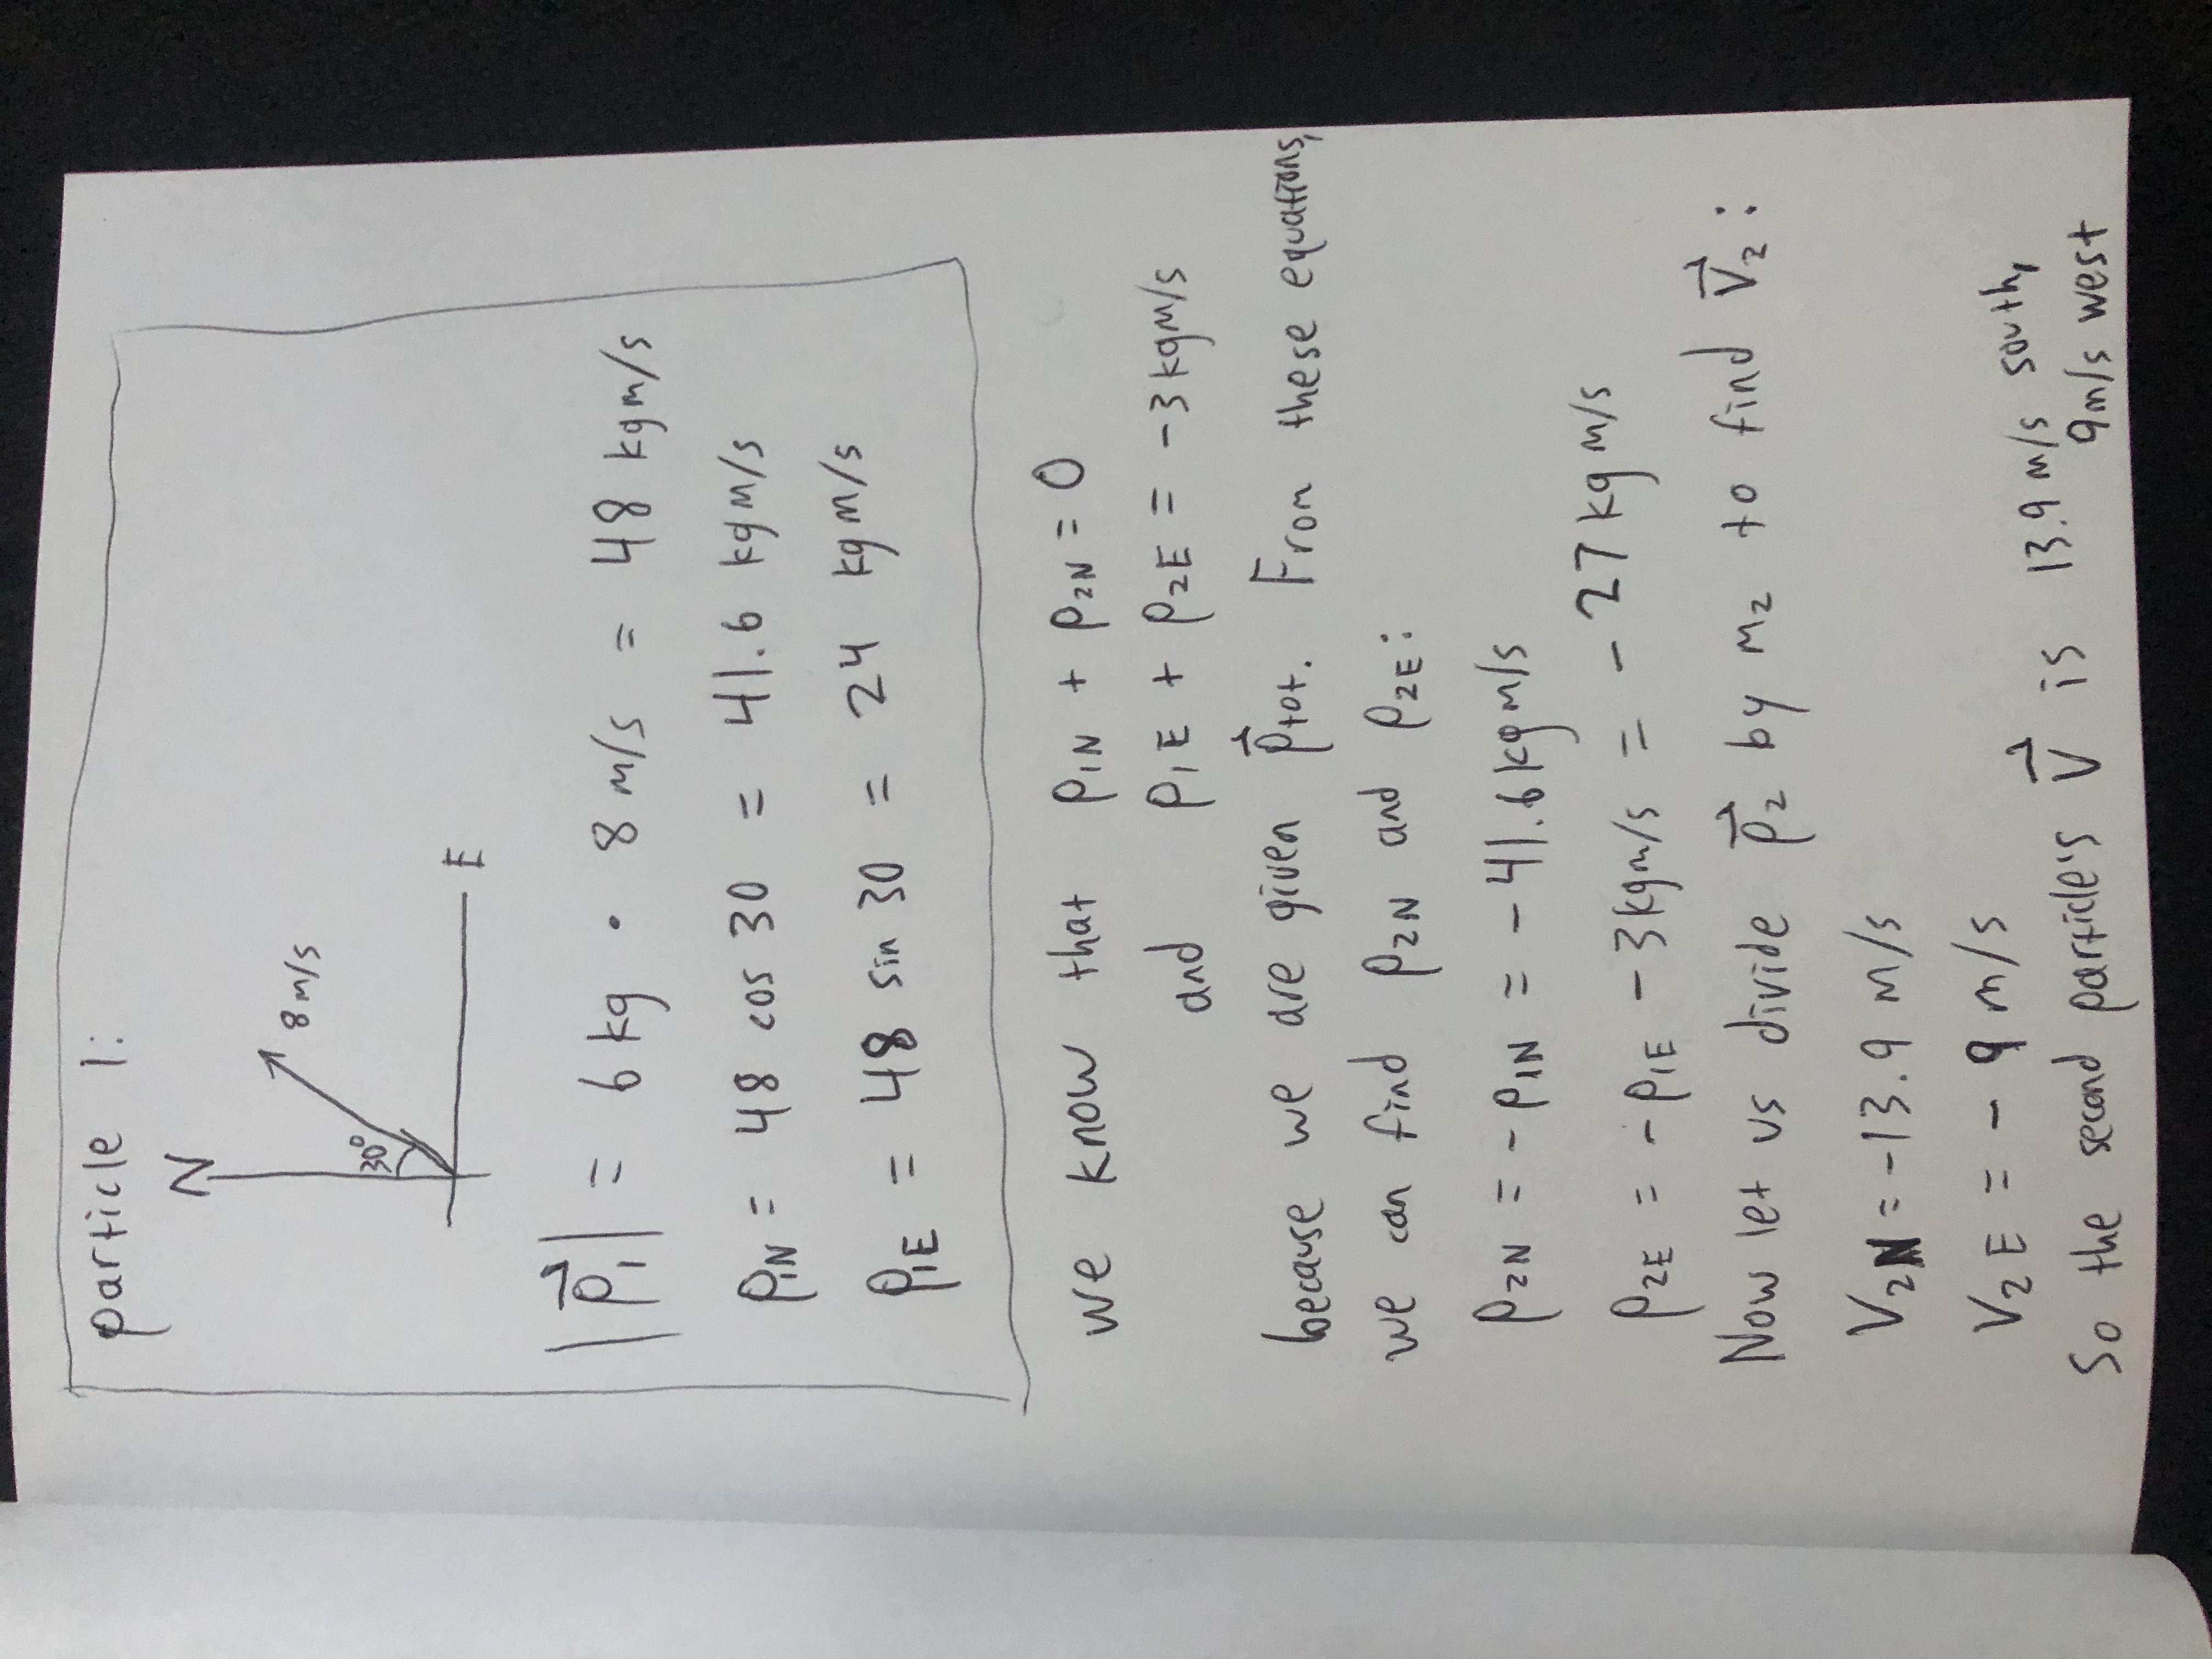 particle 1:
N
30°
8 m/s
E
|p⃗₁| = 6 kg · 8 m/s = 48 kg m/s
p₁N = 48 cos 30 = 41.6 kg m/s
p₁E = 48 sin 30 = 24 kg m/s
we know that p₁N + p₂N = 0
and p₁E + p₂E = -3 kgm/s
because we are given p⃗tot. From these equations,
we can find p₂N and p₂E:
p₂N = -p₁N = -41.6 kg m/s
p₂E = -p₁E - 3 kgm/s = -27 kg m/s
Now let us divide p⃗₂ by m₂ to find v⃗₂:
V₂N = -13.9 m/s
V₂E = -9 m/s
So the second particle's v⃗ is 13.9 m/s south,
9 m/s west